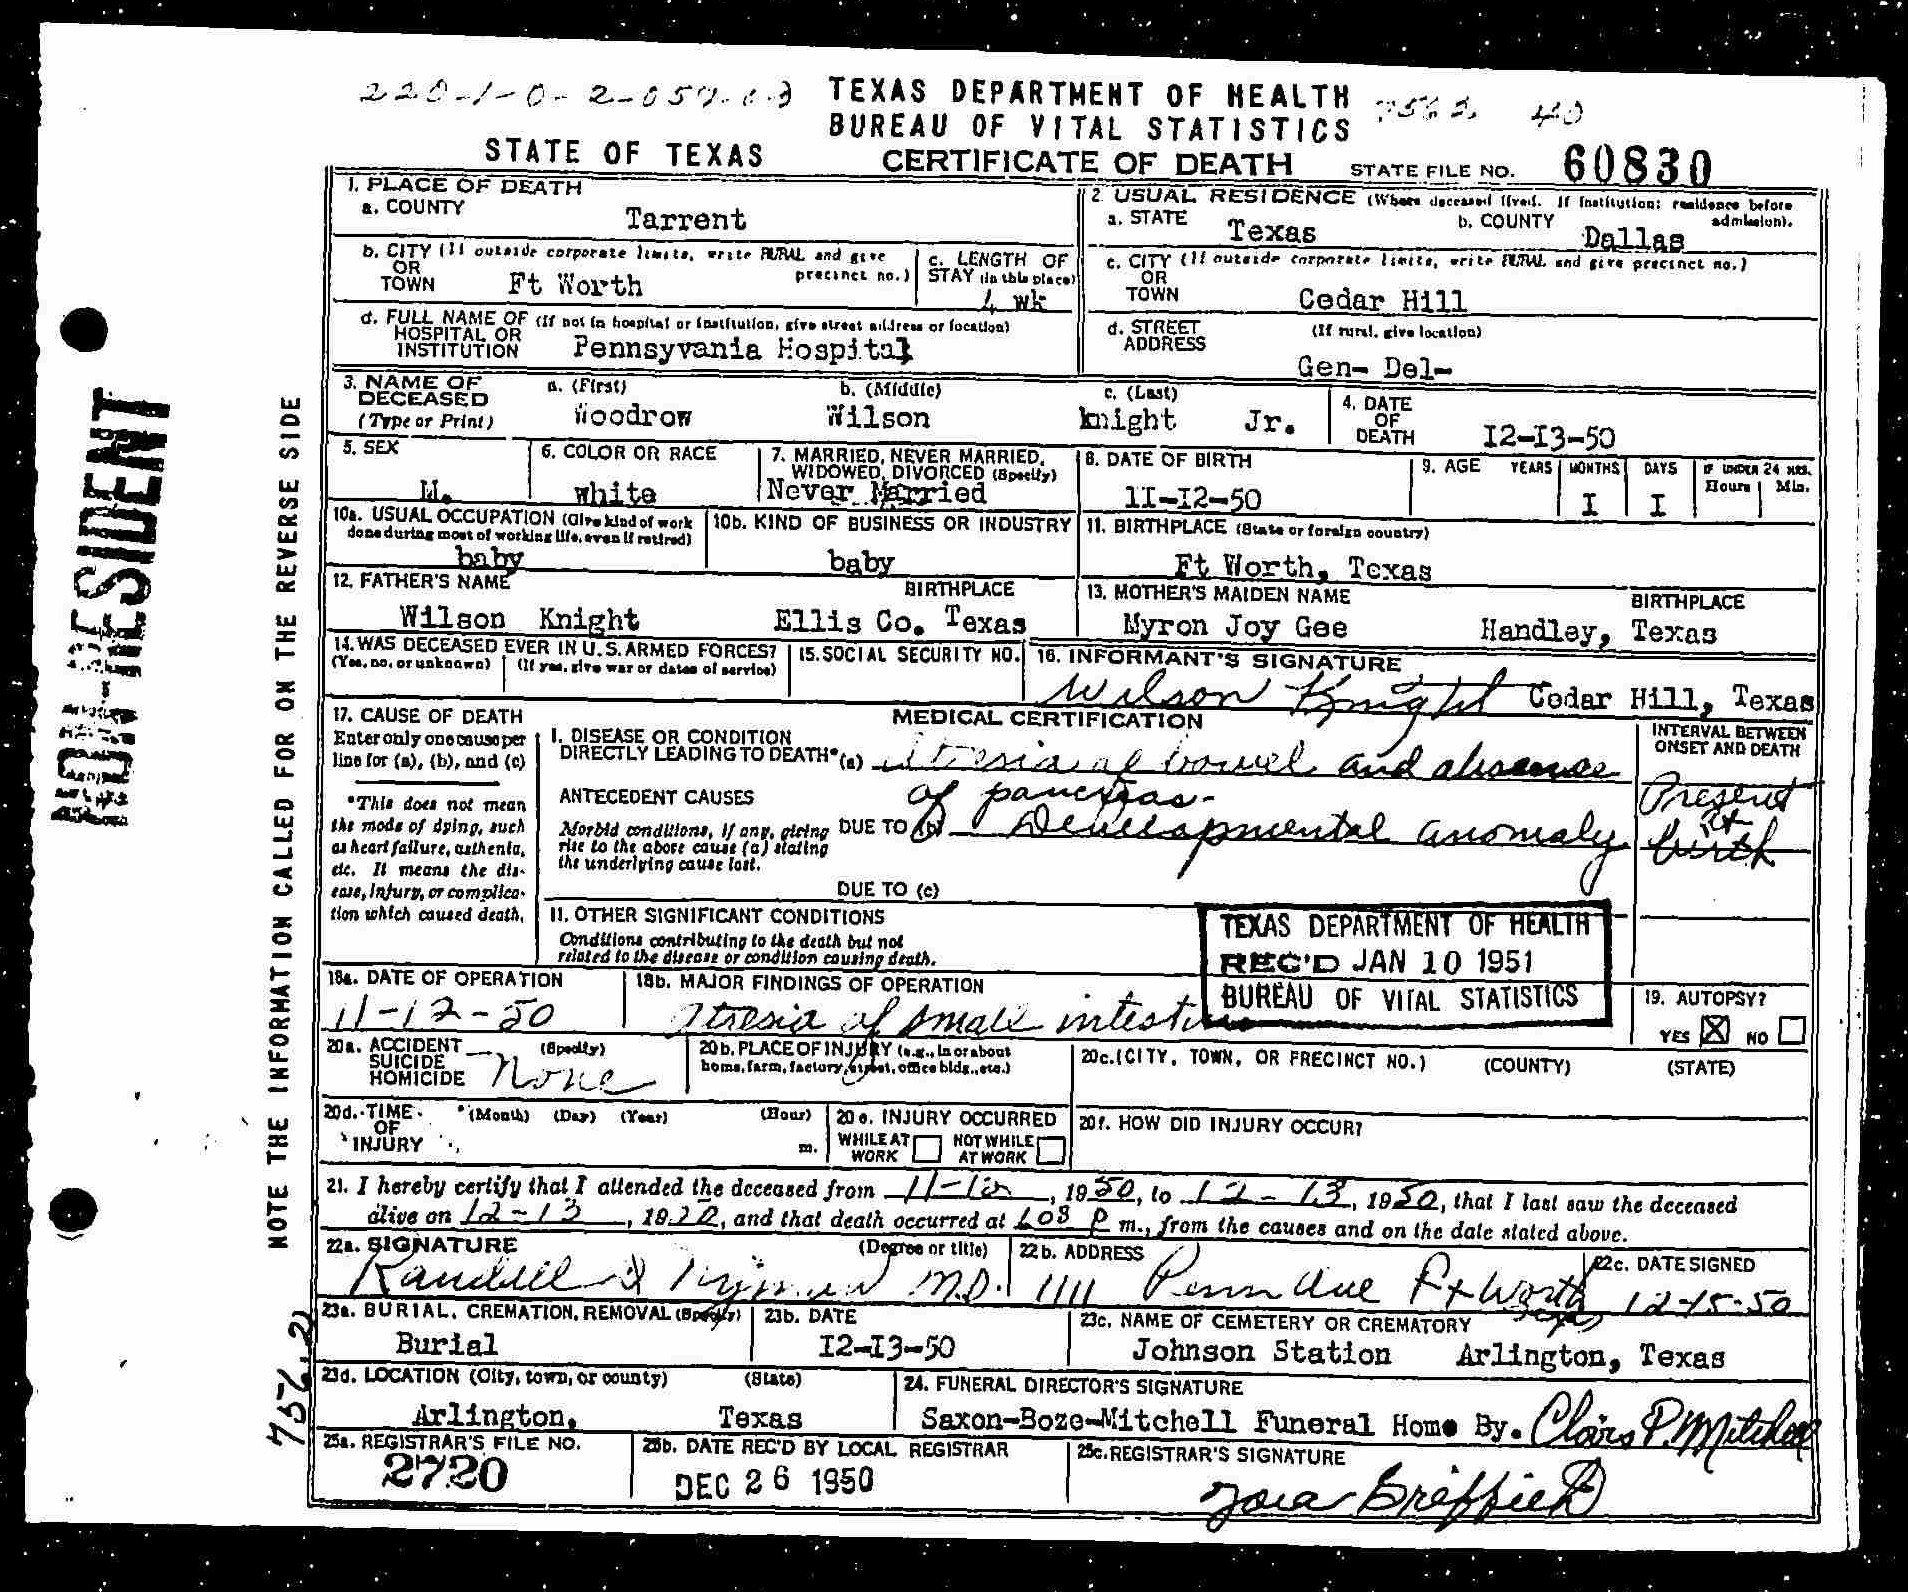 220-1-0-2-059-03 TEXAS DEPARTMENT OF HEALTH 7562 40
BUREAU OF VITAL STATISTICS
STATE OF TEXAS CERTIFICATE OF DEATH STATE FILE NO. 60830
1. PLACE OF DEATH
a. COUNTY Tarrent
2. USUAL RESIDENCE (Where deceased lived. If institution: residence before admission).
a. STATE Texas b. COUNTY Dallas
b. CITY (If outside corporate limits, write RURAL and give precinct no.)
OR
TOWN Ft Worth
c. LENGTH OF
STAY (in this place)
4 wk
c. CITY (If outside corporate limits, write RURAL and give precinct no.)
OR
TOWN Cedar Hill
d. FULL NAME OF (If not in hospital or institution, give street address or location)
HOSPITAL OR
INSTITUTION Pennsyvania Hospital
d. STREET (If rural, give location)
ADDRESS
Gen- Del-
3. NAME OF DECEASED
(Type or Print)
a. (First) b. (Middle) c. (Last)
Woodrow Wilson knight Jr.
4. DATE
OF
DEATH I2-I3-50
5. SEX
M.
6. COLOR OR RACE
white
7. MARRIED, NEVER MARRIED,
WIDOWED, DIVORCED (Specify)
Never Married
8. DATE OF BIRTH
1I-I2-50
9. AGE YEARS MONTHS DAYS IF UNDER 24 HRS.
Hours Min.
I I
10a. USUAL OCCUPATION (Give kind of work
done during most of working life, even if retired)
baby
10b. KIND OF BUSINESS OR INDUSTRY
baby
11. BIRTHPLACE (State or foreign country)
Ft Worth, Texas
12. FATHER'S NAME BIRTHPLACE
Wilson Knight Ellis Co. Texas
13. MOTHER'S MAIDEN NAME BIRTHPLACE
Myron Joy Gee Handley, Texas
14. WAS DECEASED EVER IN U.S. ARMED FORCES?
(Yes, no, or unknown) (If yes, give war or dates of service)
15. SOCIAL SECURITY NO.
16. INFORMANT'S SIGNATURE
Wilson Knight Cedar Hill, Texas
17. CAUSE OF DEATH
Enter only one cause per
line for (a), (b), and (c)
*This does not mean
the mode of dying, such
as heart failure, asthenia,
etc. It means the dis-
ease, injury, or complica-
tion which caused death.
MEDICAL CERTIFICATION
I. DISEASE OR CONDITION
DIRECTLY LEADING TO DEATH* (a) Atresia of bowel and absence
of pancreas-
ANTECEDENT CAUSES
Morbid conditions, if any, giving
rise to the above cause (a) stating
the underlying cause last.
DUE TO (b) Developmental anomaly
DUE TO (c)
INTERVAL BETWEEN
ONSET AND DEATH
Present
at
birth
II. OTHER SIGNIFICANT CONDITIONS
Conditions contributing to the death but not
related to the disease or condition causing death.
TEXAS DEPARTMENT OF HEALTH
REC'D JAN 10 1951
BUREAU OF VITAL STATISTICS
18a. DATE OF OPERATION
11-12-50
18b. MAJOR FINDINGS OF OPERATION
Atresia of small intestine
19. AUTOPSY?
YES NO
20a. ACCIDENT (Specify)
SUICIDE
HOMICIDE None
20b. PLACE OF INJURY (e.g., in or about
home, farm, factory, street, office bldg., etc.)
20c. (CITY, TOWN, OR PRECINCT NO.) (COUNTY) (STATE)
20d. TIME (Month) (Day) (Year) (Hour)
OF
INJURY m.
20e. INJURY OCCURRED
WHILE AT WORK NOT WHILE AT WORK
20f. HOW DID INJURY OCCUR?
21. I hereby certify that I attended the deceased from 11-12, 1950, to 12-13, 1950, that I last saw the deceased
alive on 12-13, 1950, and that death occurred at 608 P m., from the causes and on the date stated above.
22a. SIGNATURE (Degree or title)
Randell M.D.
22b. ADDRESS
1111 Penn Ave Ft Worth
Texas
22c. DATE SIGNED
12-15-50
23a. BURIAL, CREMATION, REMOVAL (Specify)
Burial
23b. DATE
I2-I3-50
23c. NAME OF CEMETERY OR CREMATORY
Johnson Station Arlington, Texas
23d. LOCATION (City, town, or county) (State)
Arlington, Texas
24. FUNERAL DIRECTOR'S SIGNATURE
Saxon-Boze-Mitchell Funeral Home By. P. Mitchell
25a. REGISTRAR'S FILE NO.
2720
25b. DATE REC'D BY LOCAL REGISTRAR
DEC 26 1950
25c. REGISTRAR'S SIGNATURE
Griffieth
NON-RESIDENT
NOTE THE INFORMATION CALLED FOR ON THE REVERSE SIDE
756.2